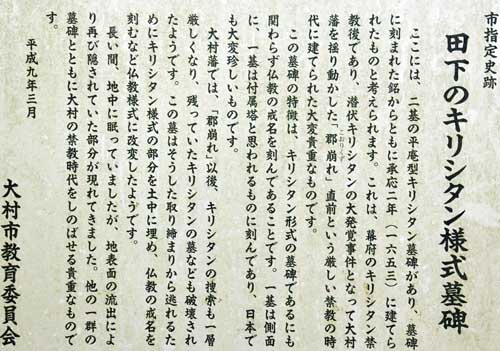 市指定史跡
田下のキリシタン様式墓碑
ここには、二基の平庵型キリシタン墓碑があり、墓碑
に刻まれた銘からともに承応二年(一六五三)に建てら
れたものと考えられます。これは、幕府のキリシタン禁
教後であり、潜伏キリシタンの大発覚事件となって大村
藩を揺り動かした「郡崩れ」直前という厳しい禁教の時
こおりくずれ
代に建てられた大変貴重なものです。
この墓碑の特徴は、キリシタン形式の墓碑であるにも
関わらず仏教の戒名を刻んであることです。一基は側面
に、一基は付属塔と思われるものに刻んであり、日本で
も大変珍しいものです。
大村藩では、「郡崩れ」以後、キリシタンの捜索も一層
厳しくなり、残っていたキリシタンの墓なども破壊され
たようです。この墓はそうした取り締まりから逃れるた
めにキリシタン様式の部分を土中に埋め、仏教の戒名を
刻むなど仏教様式に改変したようです。
長い間、地中に眠っていましたが、地表面の流出によ
り再び隠されていた部分が現れてきました。他の一群の
墓碑とともに大村の禁教時代をしのばせる貴重なもので
す。
平成九年三月
大村市教育委員会